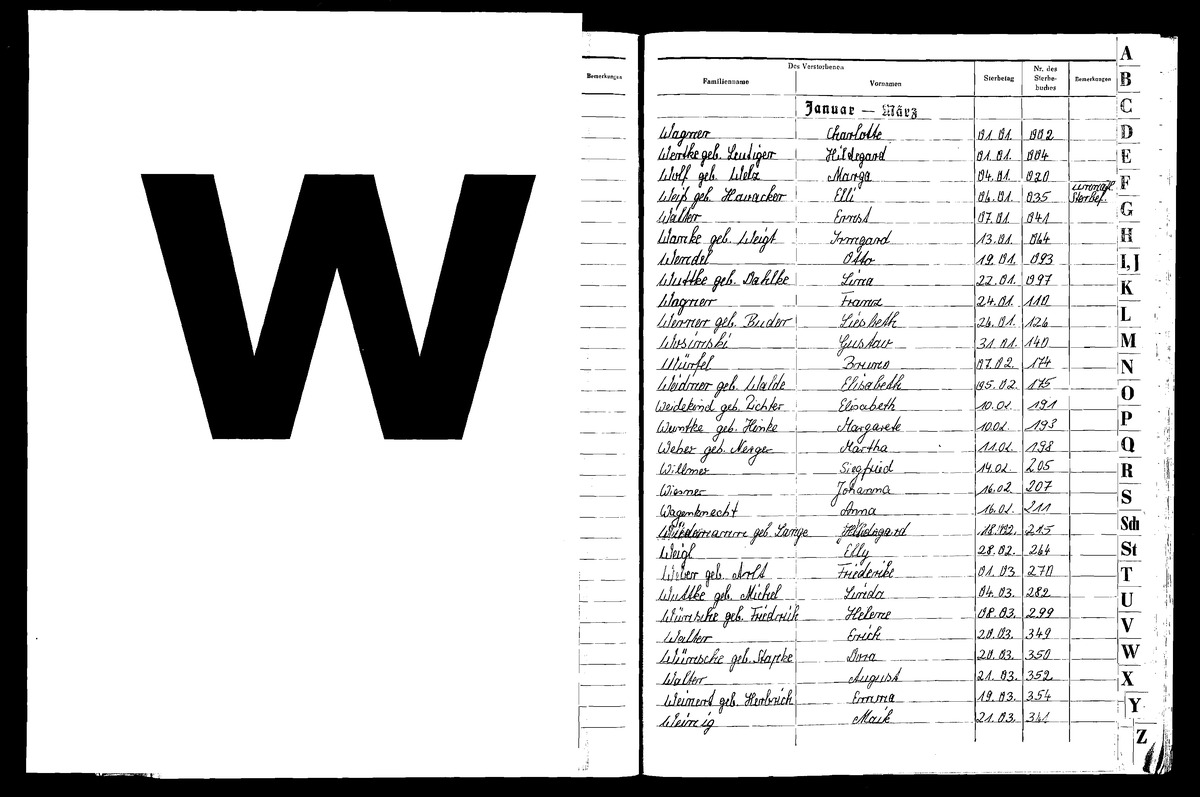 W
Bemerkungen
Des Verstorbenen
Familienname Vornamen Sterbetag Nr. des Sterbe-buches Bemerkungen
Januar — März
Wagner Charlotte 01.01. 002
Wentke geb. Leutiger Hildegard 01.01. 004
Wolf geb. Welz Marga 04.01. 020
Weiß geb. Havacker Elli 04.01. 035 Sterbef.
Walter Ernst 07.01. 041
Wanke geb. Weigt Irmgard 13.01. 064
Wendel Otto 19.01. 093
Wuttke geb. Dahlke Lina 22.01. 097
Wagner Franz 24.01. 110
Werner geb. Buder Liesbeth 26.01. 126
Wrsinski Gustav 31.01. 140
Würfel Bruno 07.02. 174
Weidner geb. Walde Elisabeth 05.02 175
Weidekind geb. Zichter Elisabeth 10.02. 191
Wuntke geb. Hinke Margarete 10.02. 193
Weber geb. Nerger Martha 11.02. 198
Willmer Siegfried 14.02. 205
Wiesner Johanna 16.02. 207
Wagenknecht Anna 16.02. 211
geb. Lange Hildegard 18.02. 215
Weigl Elly 28.02. 264
Weber geb. Arlt Friederike 01.03 270
Wuttke geb. Michel Linda 04.03. 282
Wünsche geb. Friedrich Helene 08.03. 299
Walter Erich 20.03. 349
Wünsche geb. Stapke Dora 20.03. 350
Walter August 21.03. 352
Weinert geb. Herbrich Emma 19.03. 354
Weinig Maik 21.03.
A
B
C
D
E
F
G
H
I, J
K
L
M
N
O
P
Q
R
S
Sch
St
T
U
V
W
X
Y
Z